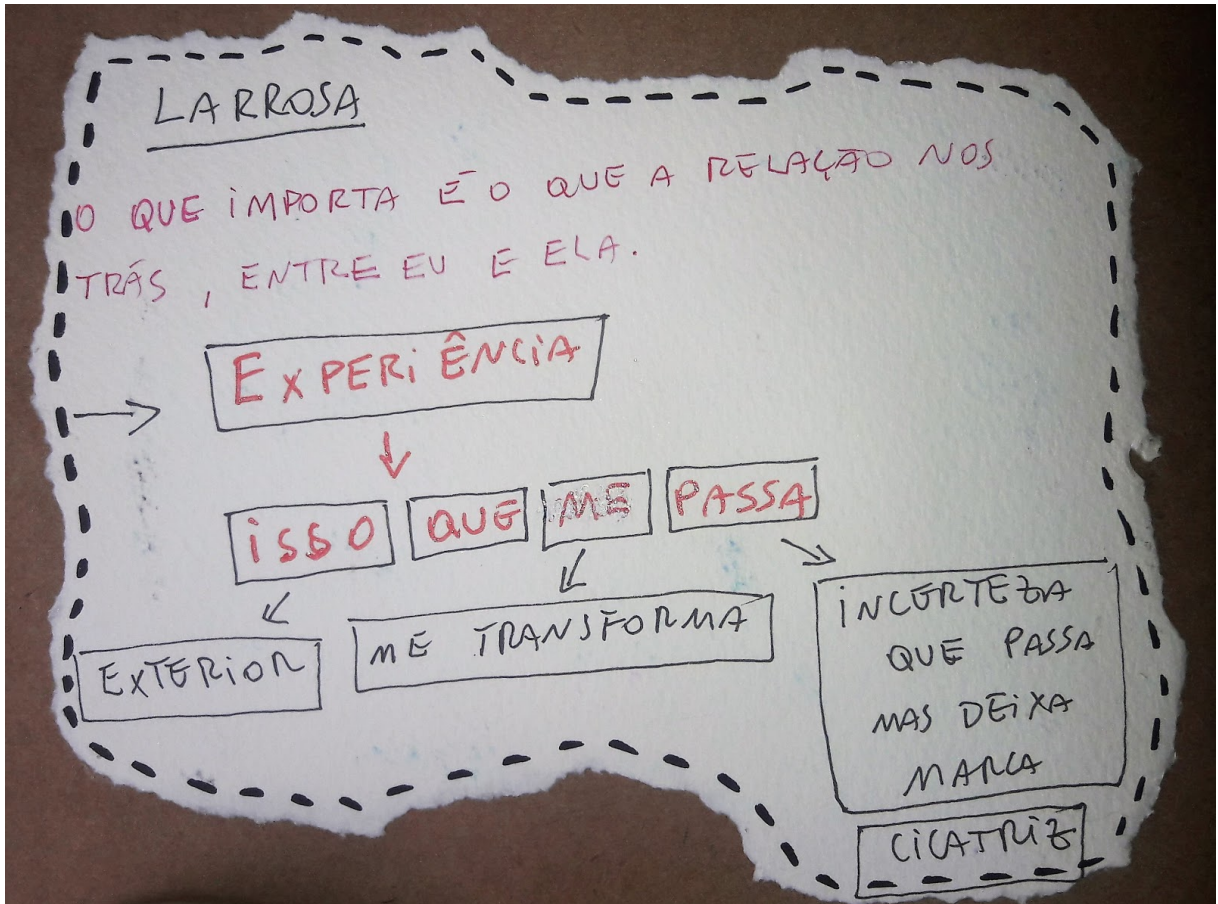 LARROSA
O QUE iMPORTA É O QUE A RELAÇÃO NOS
TRÁS, ENTRE EU E ELA.
EXPERiÊNCiA
iSSO QUE ME PASSA
EXTERiOR
ME TRANSFORMA
iNCERTEZA
QUE PASSA
MAS DEiXA
MARCA
CiCATRiZ